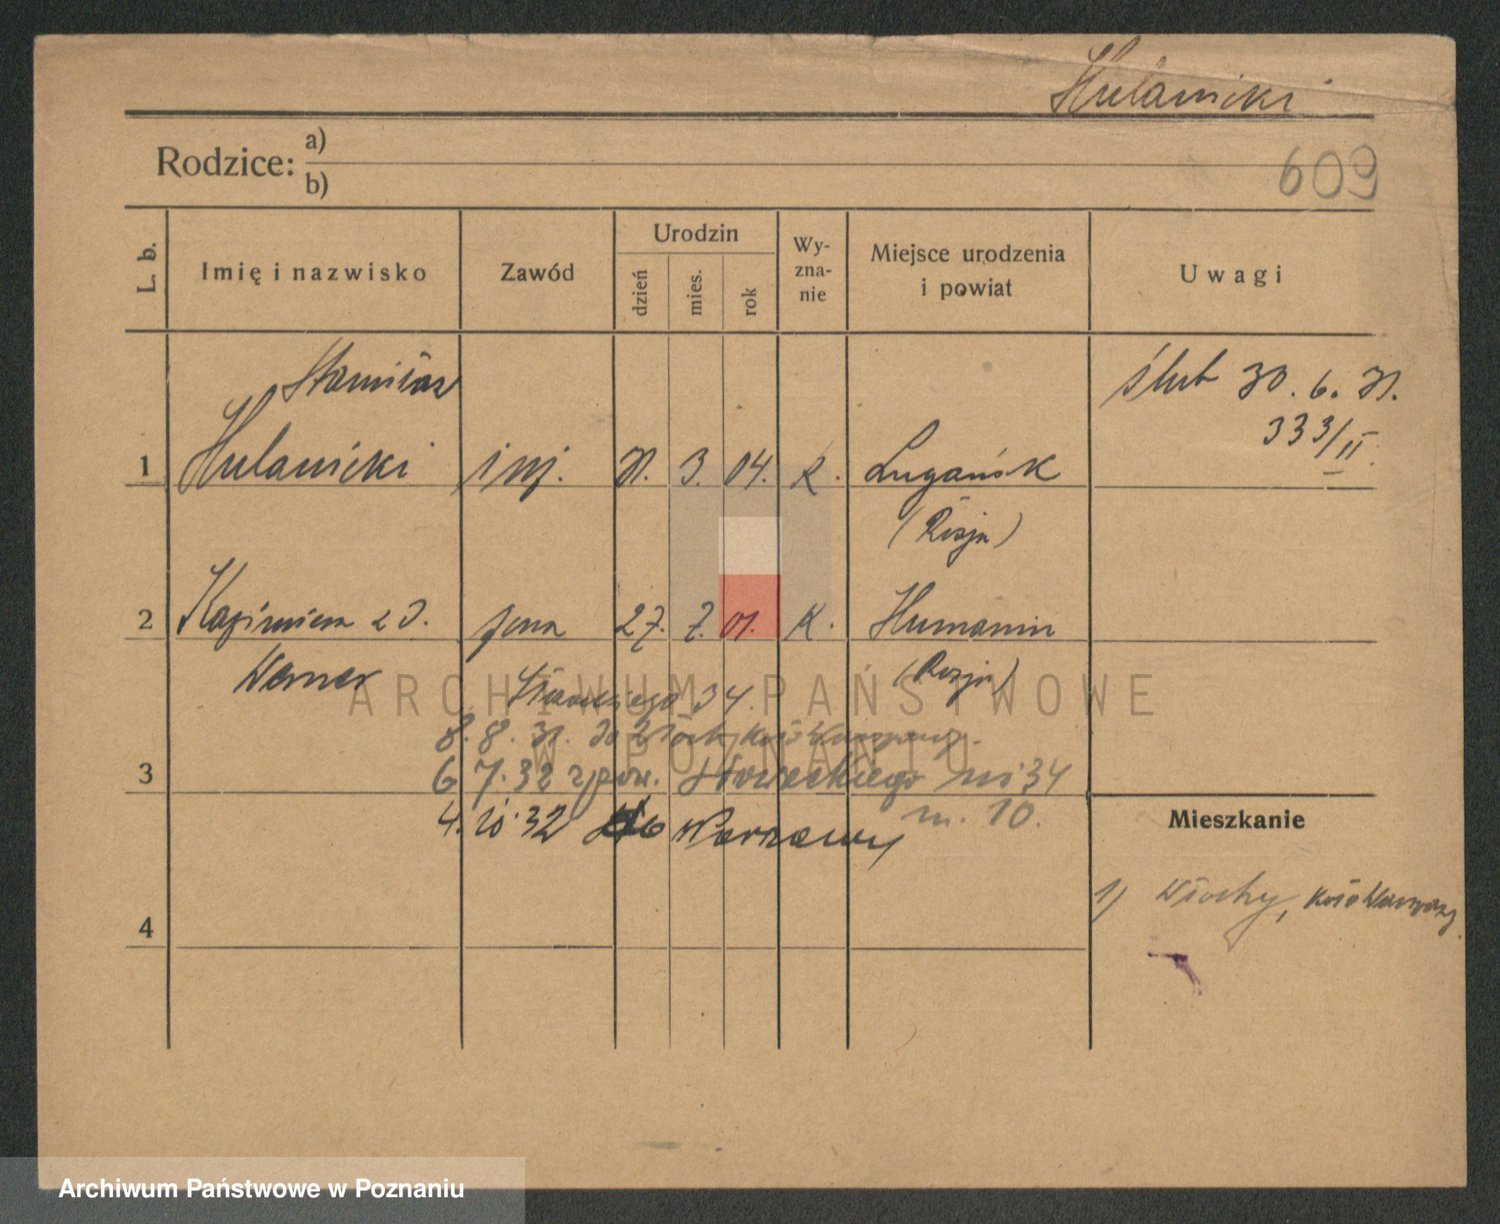 Hulanicki
Rodzice: a)
b)
609
L. b.
Imię i nazwisko
Zawód
Urodzin
dzień
mies.
rok
Wy-
zna-
nie
Miejsce urodzenia
i powiat
Uwagi
Stanisław
ślub 30. 6. 31.
333/II.
1 Hulanicki inj. 31. 3. 04. R. Lugańsk
(Rosja)
2 Kazimiera z d. żona 27. 7. 01. K. Humanin
Werner
(Rosja)
Słowackiego 34.
8. 8. 31. do Włoch koło Warszawy.
3
6 7. 32 z pow. Słowackiego nr 34
m. 10.
4. 10. 32 do Warszawy
Mieszkanie
1) Włochy, koło Warszawy.
4
ARCHIWUM PAŃSTWOWE
W POZNANIU
Archiwum Państwowe w Poznaniu